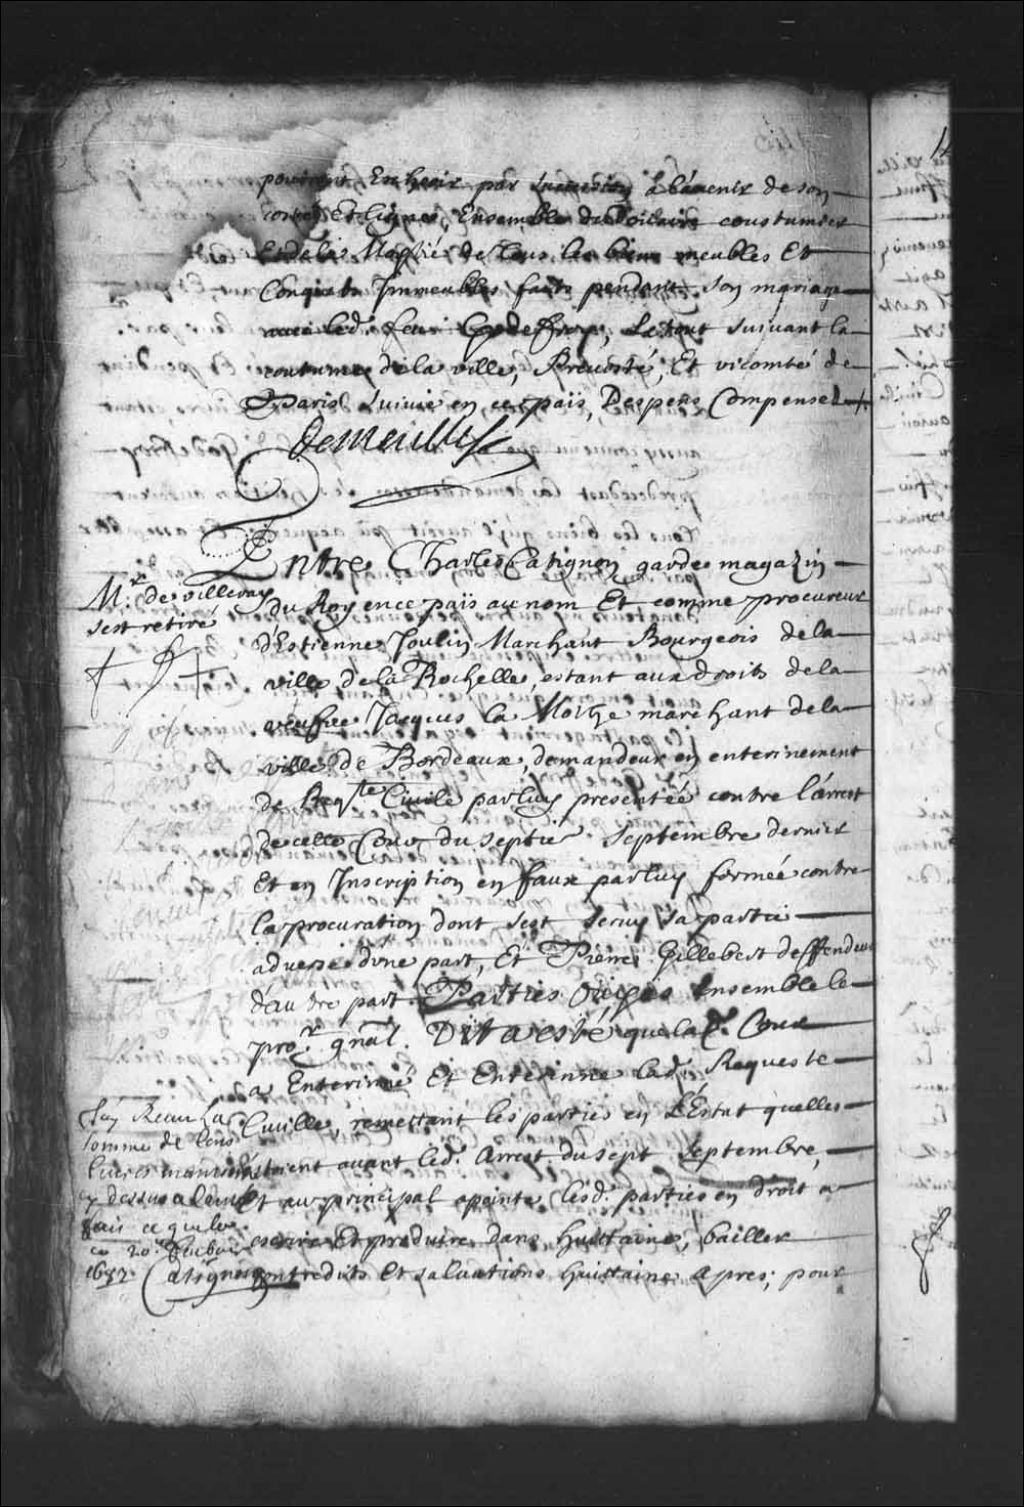 pourront Escheoir par succession à l'auenir de son
costé Et ligne, Ensemble du Doüaire coustumier
Et de la Moytié de tous les biens meubles Et
Conquets Immeubles faits pendant son mariage
auec led. feu Godeffroy, Le tout suiuant la
coutume de la ville, Preuosté, Et vicomté de
Paris suiuie en ce païs, Despens Compensez
Demeulle
Entre Charles Catignon garde magazin
Mr. de villeray
s'est retiré
du Roy en ce païs au nom Et comme procureur
d'Estienne Joulin Marchant Bourgeois de la
ville de la Rochelle, estant aux droits de la
veufue Jacques la Mothe marchant de la
ville de Bordeaux, demandeur en enterinement
de Reqte Ciuile par luy presentée contre l'arrest
de celle Cour du septie. Septembre dernier
Et en Inscription en faux par luy formée contre
la procuration dont sest seruy sa partie
aduerse d'vne part, Et Pierre Gillebert deffendeur
d'autre part. Parties Oüyes Ensemble le
pror. gnãl. Dit a esté que la C. Cour
a Enteriné Et Enterinne lad. Requeste
Ciuille, remettant les parties en L'Estat quelles
estoient auant led. Arrest du sept Septembre,
Et au principal apointe lesd. parties en droit a
escrire Et produire dans huittaine, bailler
contredits Et saluations huittaine apres; pour
J'ay Receu la
somme de
liures
cy dessus
fait a quebec
ce 20e
1682.
Catignon